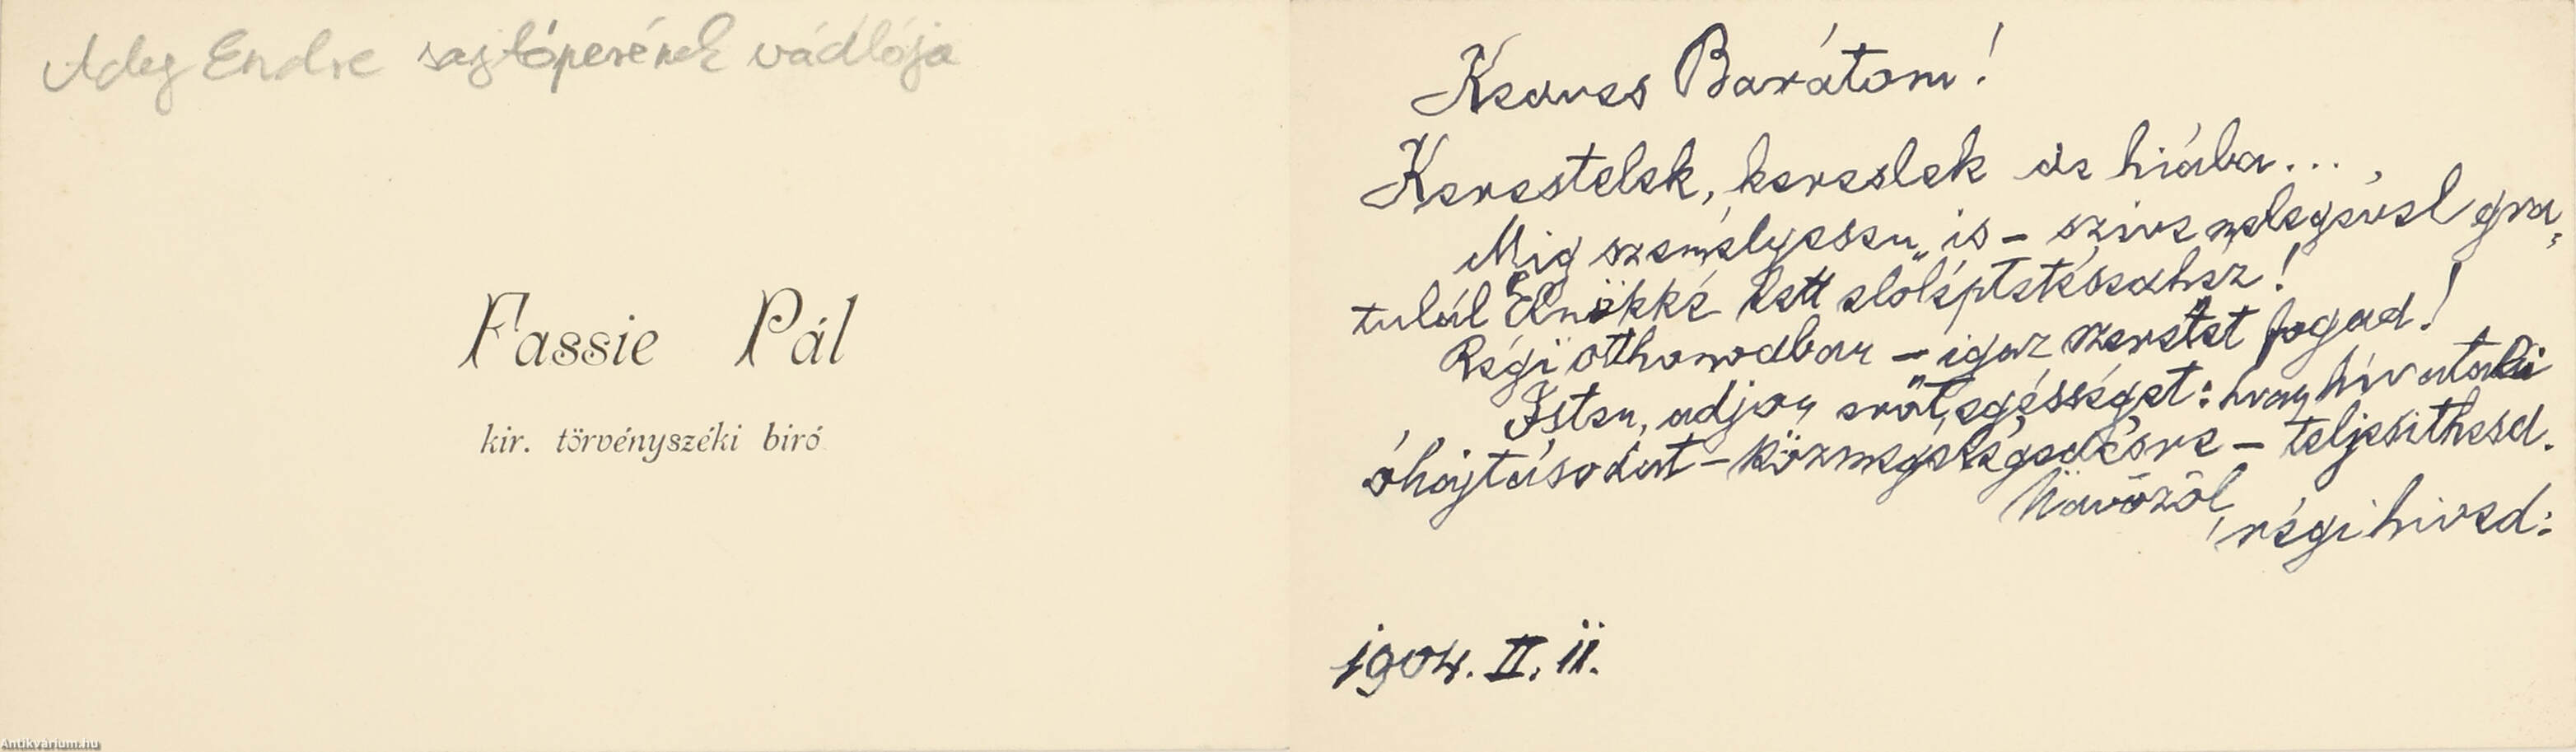 Ady Endre sajtóperének vádlója
Fassie Pál
kir. törvényszéki biró
Kedves Barátom!
Kerestelek, kereslek de hiába...
Mig személyesen is – szive melegével gra-
tulál Elnökké lett előléptetésedhez!
Régi otthonodban – igaz szeretet fogad!
Isten adjon erőt, egészséget: hogy hivatali
óhajtásodat – közmegelégedésre – teljesithesd.
Üdvözöl
régi hived:
1904. II. 11.
Antikvárium.hu